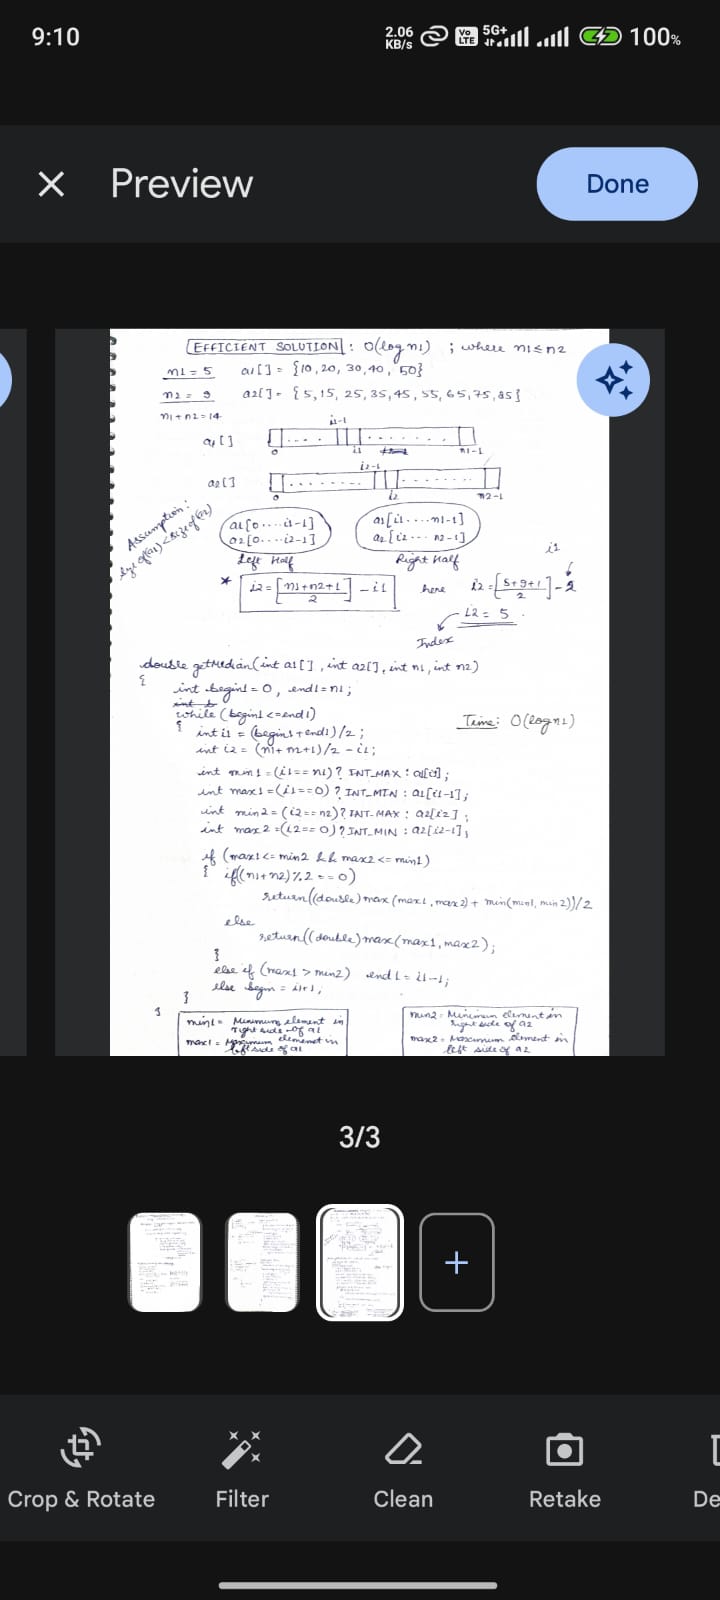 9:10
2.06 KB/s Vo LTE 5G+ 100%
Preview
Done
EFFICIENT SOLUTION : O(log n1) ; where n1≤n2
n1 = 5 a1[] = {10, 20, 30, 40, 50}
n2 = 9 a2[] = {5, 15, 25, 35, 45, 55, 65, 75, 85}
n1+n2=14
i1-1
a1[]
0 i1 n1-1
i2-1
a2[]
0 i2 n2-1
Assumption:
size of(a1) < size of(a2)
a1[0....i1-1]
a2[0....i2-1]
Left Half
a1[i1....n1-1]
a2[i2... n2-1]
Right Half
i1
* i2 = [n1+n2+1 / 2] - i1 here i2 = [5+9+1 / 2] - 2
i2 = 5
Index
double getMedian(int a1[], int a2[], int n1, int n2)
{
int begin1 = 0, end1 = n1;
while (begin1 <= end1)
{ int i1 = (begin1+end1)/2;
Time: O(log n1)
int i2 = (n1+n2+1)/2 - i1;
int min1 = (i1 == n1)? INT_MAX : a1[i1];
int max1 = (i1==0) ? INT_MIN : a1[i1-1];
int min2 = (i2 == n2)? INT_MAX : a2[i2];
int max2 = (i2== 0)? INT_MIN : a2[i2-1];
if (max1 <= min2 && max2 <= min1)
{ if((n1+n2)%2 == 0)
return((double)max(max1, max2) + min(min1, min2))/2
else
return((double)max(max1, max2);
}
else if (max1 > min2) end1 = i1-1;
else begin = i1+1;
}
}
min1 = Minimum element in
right side of a1
max1 = Maximum element in
left side of a1
min2 = Minimum element in
right side of a2
max2 = Maximum element in
left side of a2
3/3
Crop & Rotate
Filter
Clean
Retake
De